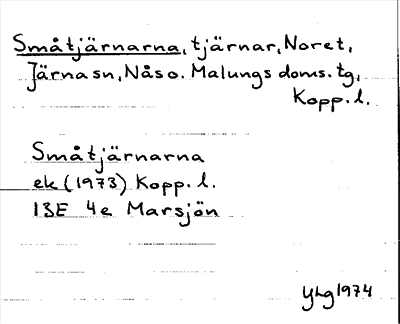 Småtjärnarna, tjärnar, Noret,
Järnasn, Nåso. Malungs doms. tg,
Kopp. l.
Småtjärnarna
ek (1973) Kopp. l.
13E 4e Marsjön
YLg 1974